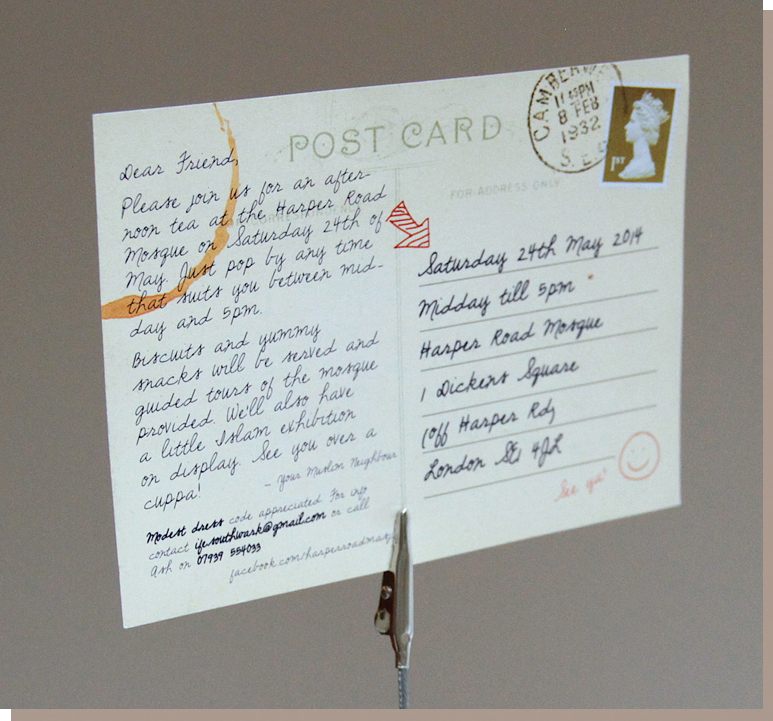 POST CARD
CAMBERW
11 45PM
8 FEB
1932
S.E.
1ST
CORRESPONDENCE
FOR ADDRESS ONLY
Dear Friend,
Please join us for an after-
noon tea at the Harper Road
Mosque on Saturday 24th of
May. Just pop by any time
that suits you between mid-
day and 5pm.
Biscuits and yummy
snacks will be served and
guided tours of the mosque
provided. We'll also have
a little Islam exhibition
on display. See you over a
cuppa!
- Your Muslim Neighbour
Modest dress code appreciated. For info
contact ifcsouthwark@gmail.com or call
Ash on 07939 554033
Saturday 24th May 2014
Midday till 5pm
Harper Road Mosque
1 Dickens Square
(off Harper Rd)
London SE1 4JL
See ya!